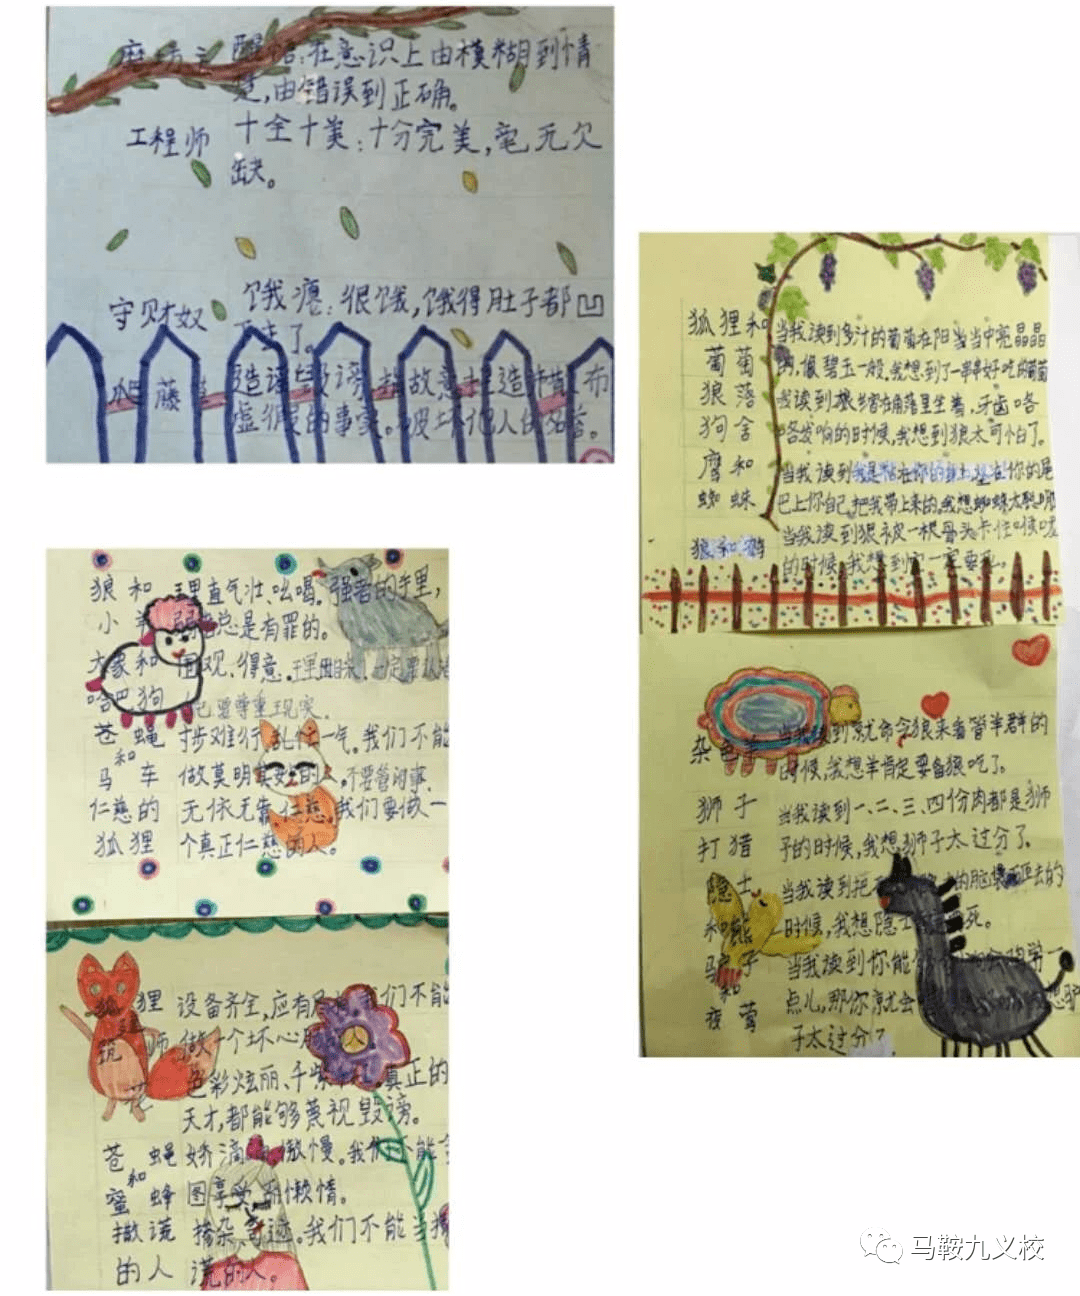 磨坊主 醒悟：在意识上由模糊到清
楚，由错误到正确。
工程师 十全十美：十分完美，毫无欠
缺。
守财奴 饿瘪：很饿，饿得肚子都凹
下去了。
藤 造谣 故意捏造 布
虚假的事实。破坏他人的名誉。
狼和 理直气壮、吆喝。强者的手里，
小羊 弱者总是有罪的。
大象和 围观、得意。
哈巴狗 己要尊重现实。
苍蝇 步难行、乱忙一气。我们不能
和
马车 做莫明其妙的人，不要管闲事。
仁慈的 无依无靠、仁慈，我们要做一
狐狸 个真正仁慈的人。
狐狸 设备齐全，应有尽有。我们不能
建筑师 做一个坏心肠 人
花 色彩炫丽、千紫 真正的
天才，都能够蔑视毁谤。
苍蝇 娇滴 傲慢。我们不能
和
蜜蜂 图享受、 懒惰。
撒谎 掺杂、奇迹。我们不能当撒
的人 谎的人。
狐狸和 当我读到多汁的葡萄在阳光当中亮晶晶
葡萄 的，像碧玉一般，我想到了一串串好吃的葡萄
狼落 我读到狼 在角落里坐着，牙齿咯
狗舍 咯发响的时候，我想到狼太可怕了。
鹰和 当我读到我是粘在你的 坐在你的尾
蜘蛛 巴上你自己把我带上来的。我想蜘蛛太聪明
狼和鹤 当我读到狼被一根骨头卡住喉咙
的时候，我想到它一定要死。
杂色羊 当我读到就命令狼来看管羊群的
时候，我想羊肯定要备狼吃了。
狮子 当我读到一、二、三、四份肉都是狮
打猎 子的时候，我想，狮子太过分了。
隐士 当我读到把 的脑袋 去的
和熊 时候，我想隐士 死。
驴子 当我读到你能 学一
和
夜莺 点儿，那你就会
子太过分了
马鞍九义校